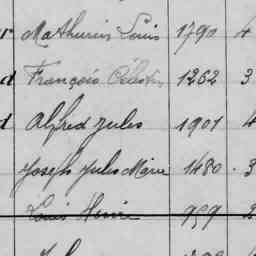 Mathurin Louis 1790 4
d François Célestin 1262 3
d Alfred Jules 1901 4
Joseph Jules Marie 1480. 3
Louis Henri 959